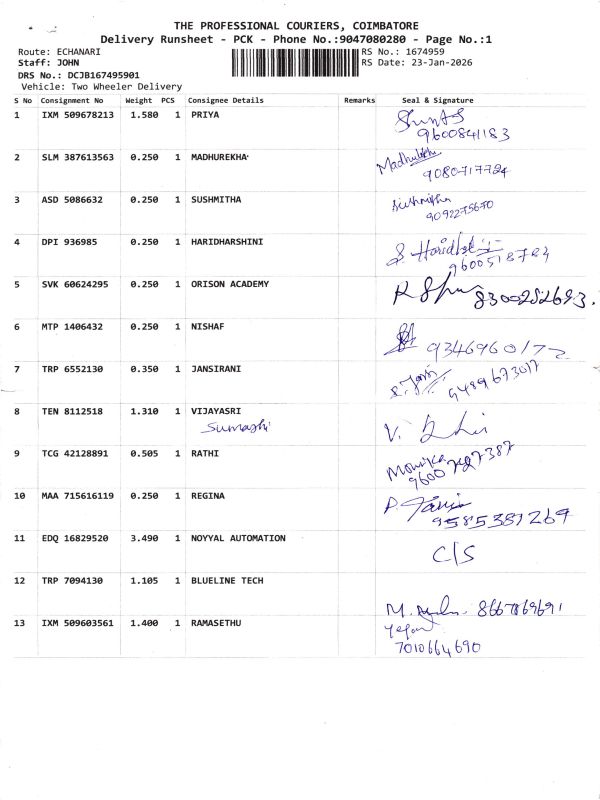 THE PROFESSIONAL COURIERS, COIMBATORE
Delivery Runsheet - PCK - Phone No.:9047080280 - Page No.:1
Route: ECHANARI
RS No.: 1674959
Staff: JOHN
RS Date: 23-Jan-2026
DRS No.: DCJB167495901
Vehicle: Two Wheeler Delivery
S No Consignment No Weight PCS Consignee Details Remarks Seal & Signature
1 IXM 509678213 1.580 1 PRIYA
9600841183
2 SLM 387613563 0.250 1 MADHUREKHA Madhurekha
9080717724
3 ASD 5086632 0.250 1 SUSHMITHA Sushmitha
9092275670
4 DPI 936985 0.250 1 HARIDHARSHINI
9600518784
5 SVK 60624295 0.250 1 ORISON ACADEMY 8300252693.
6 MTP 1406432 0.250 1 NISHAF
9346960172
7 TRP 6552130 0.350 1 JANSIRANI S. Jansi
9489673017
8 TEN 8112518 1.310 1 VIJAYASRI
9 TCG 42128891 0.505 1 RATHI Monika
10 MAA 715616119 0.250 1 REGINA
9585387269
11 EDQ 16829520 3.490 1 NOYYAL AUTOMATION
C/S
12 TRP 7094130 1.105 1 BLUELINE TECH
13 IXM 509603561 1.400 1 RAMASETHU
7010664690